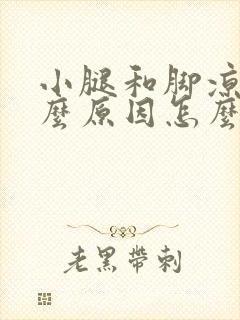 小腿和脚凉
麼原因怎麼
老黑帶刺